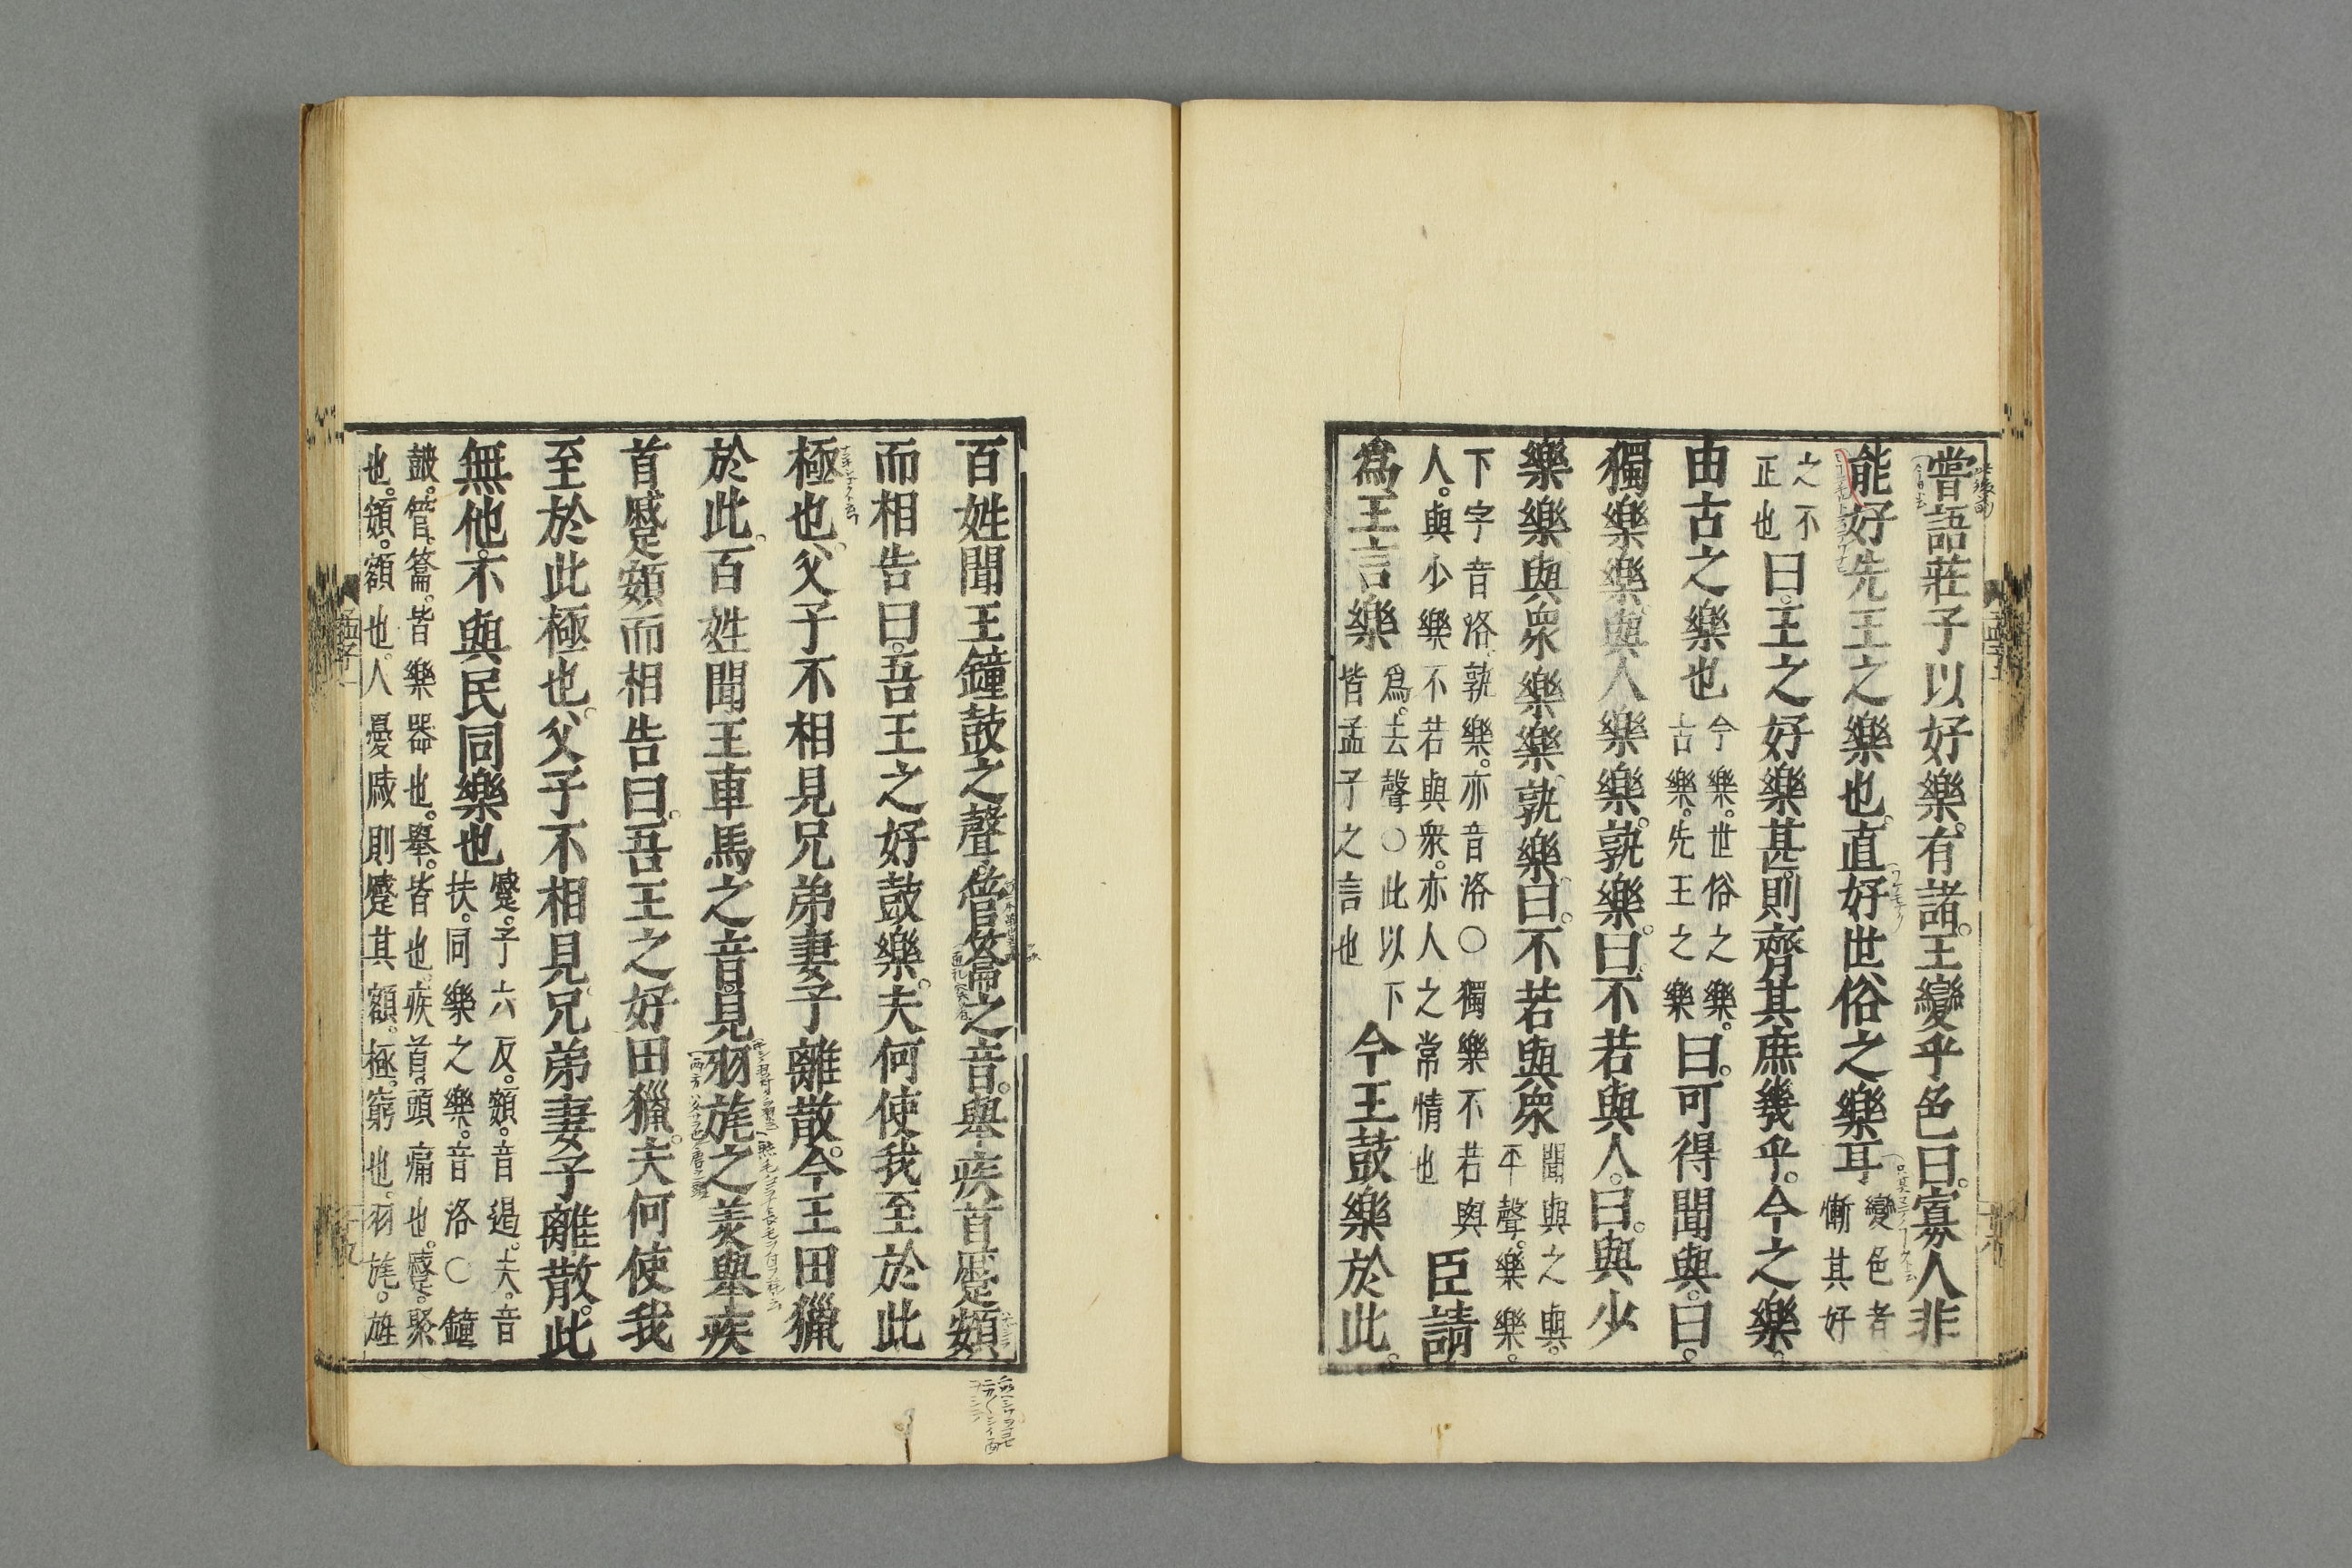 嘗語莊子以好樂。有諸。王變乎色曰。寡人非
能好先王之樂也。直好世俗之樂耳 變色者
慚其好
之不
正也 曰。王之好樂甚。則齊其庶幾乎。今之樂。
由古之樂也 今樂。世俗之樂。
古樂。先王之樂 曰。可得聞與。曰。
獨樂樂。與人樂樂。孰樂。曰。不若與人。曰。與少
樂樂。與衆樂樂。孰樂。曰。不若與衆 聞與之與。
平聲。樂樂。
下字音洛。孰樂。亦音洛○獨樂不若與
人。與少樂不若與衆。亦人之常情也 臣請
爲王言樂 爲。去聲○此以下
皆孟子之言也 今王鼓樂於此。
百姓聞王鐘鼓之聲。管籥之音。舉疾首蹙頞
而相告曰。吾王之好鼓樂。夫何使我至於此
極也。父子不相見。兄弟妻子離散。今王田獵
於此。百姓聞王車馬之音。見羽旄之美。舉疾
首蹙頞而相告曰。吾王之好田獵。夫何使我
至於此極也。父子不相見。兄弟妻子離散。此
無他。不與民同樂也 蹙。子六反。頞。音遏。夫。音
扶。同樂之樂。音洛○鐘
鼓。管籥。皆樂器也。舉。皆也。疾首。頭痛也。蹙。聚
也。頞。額也。人憂戚則蹙其額。極。窮也。羽旄。旌